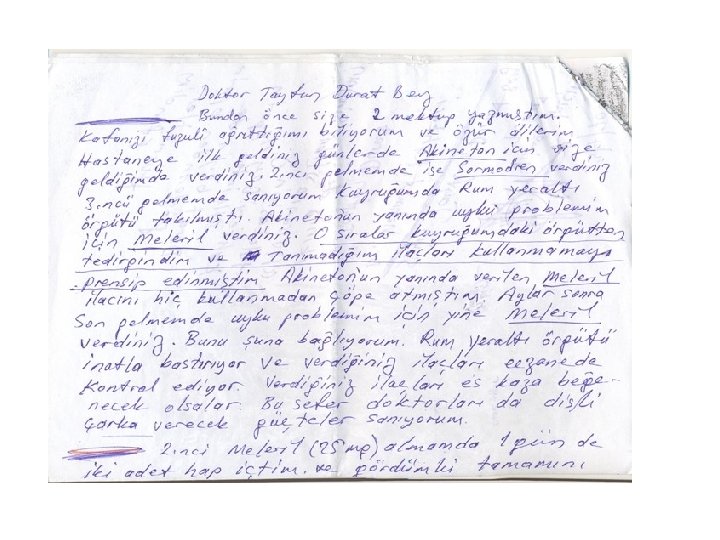 Doktor Taytun Durat Bey
Bundan önce size 2 mektup yazmıştım.
Kafanızı fuzuli ağrıttığımı biliyorum ve özür dilerim
Hastaneye ilk geldiniz günlerde Akineton için size
geldiğimde verdiniz. 2.nci gelmemde ise Sormodren verdiniz
3.ncü gelmemde sanıyorum kuyruğumda Rum yeraltı
örgütü takılmıştı. Akineton'un yanında uyku problemim
için Meleril verdiniz. O sıralar kuyruğumdaki örgütten
tedirgindim ve Tanımadığım ilaçları kullanmamayı
prensip edinmiştim Akineton'un yanında verilen Meleril
ilacını hiç kullanmadan çöpe atmıştım. Aylar sonra
Son gelmemde uyku problemim için yine Meleril
verdiniz. Bunu şuna bağlıyorum. Rum yeraltı örgütü
inatla bastırıyor ve verdiğiniz ilaçları eczanede
Kontrol ediyor. Verdiğiniz ilaçları es kaza beğe-
necek olsalar. Bu sefer doktorları da dişli
çarka verecek güçteler sanıyorum.
2.nci Meleril (25 mg) almamda 1 gün de
iki adet hap içtim. ve gördümki tamamını